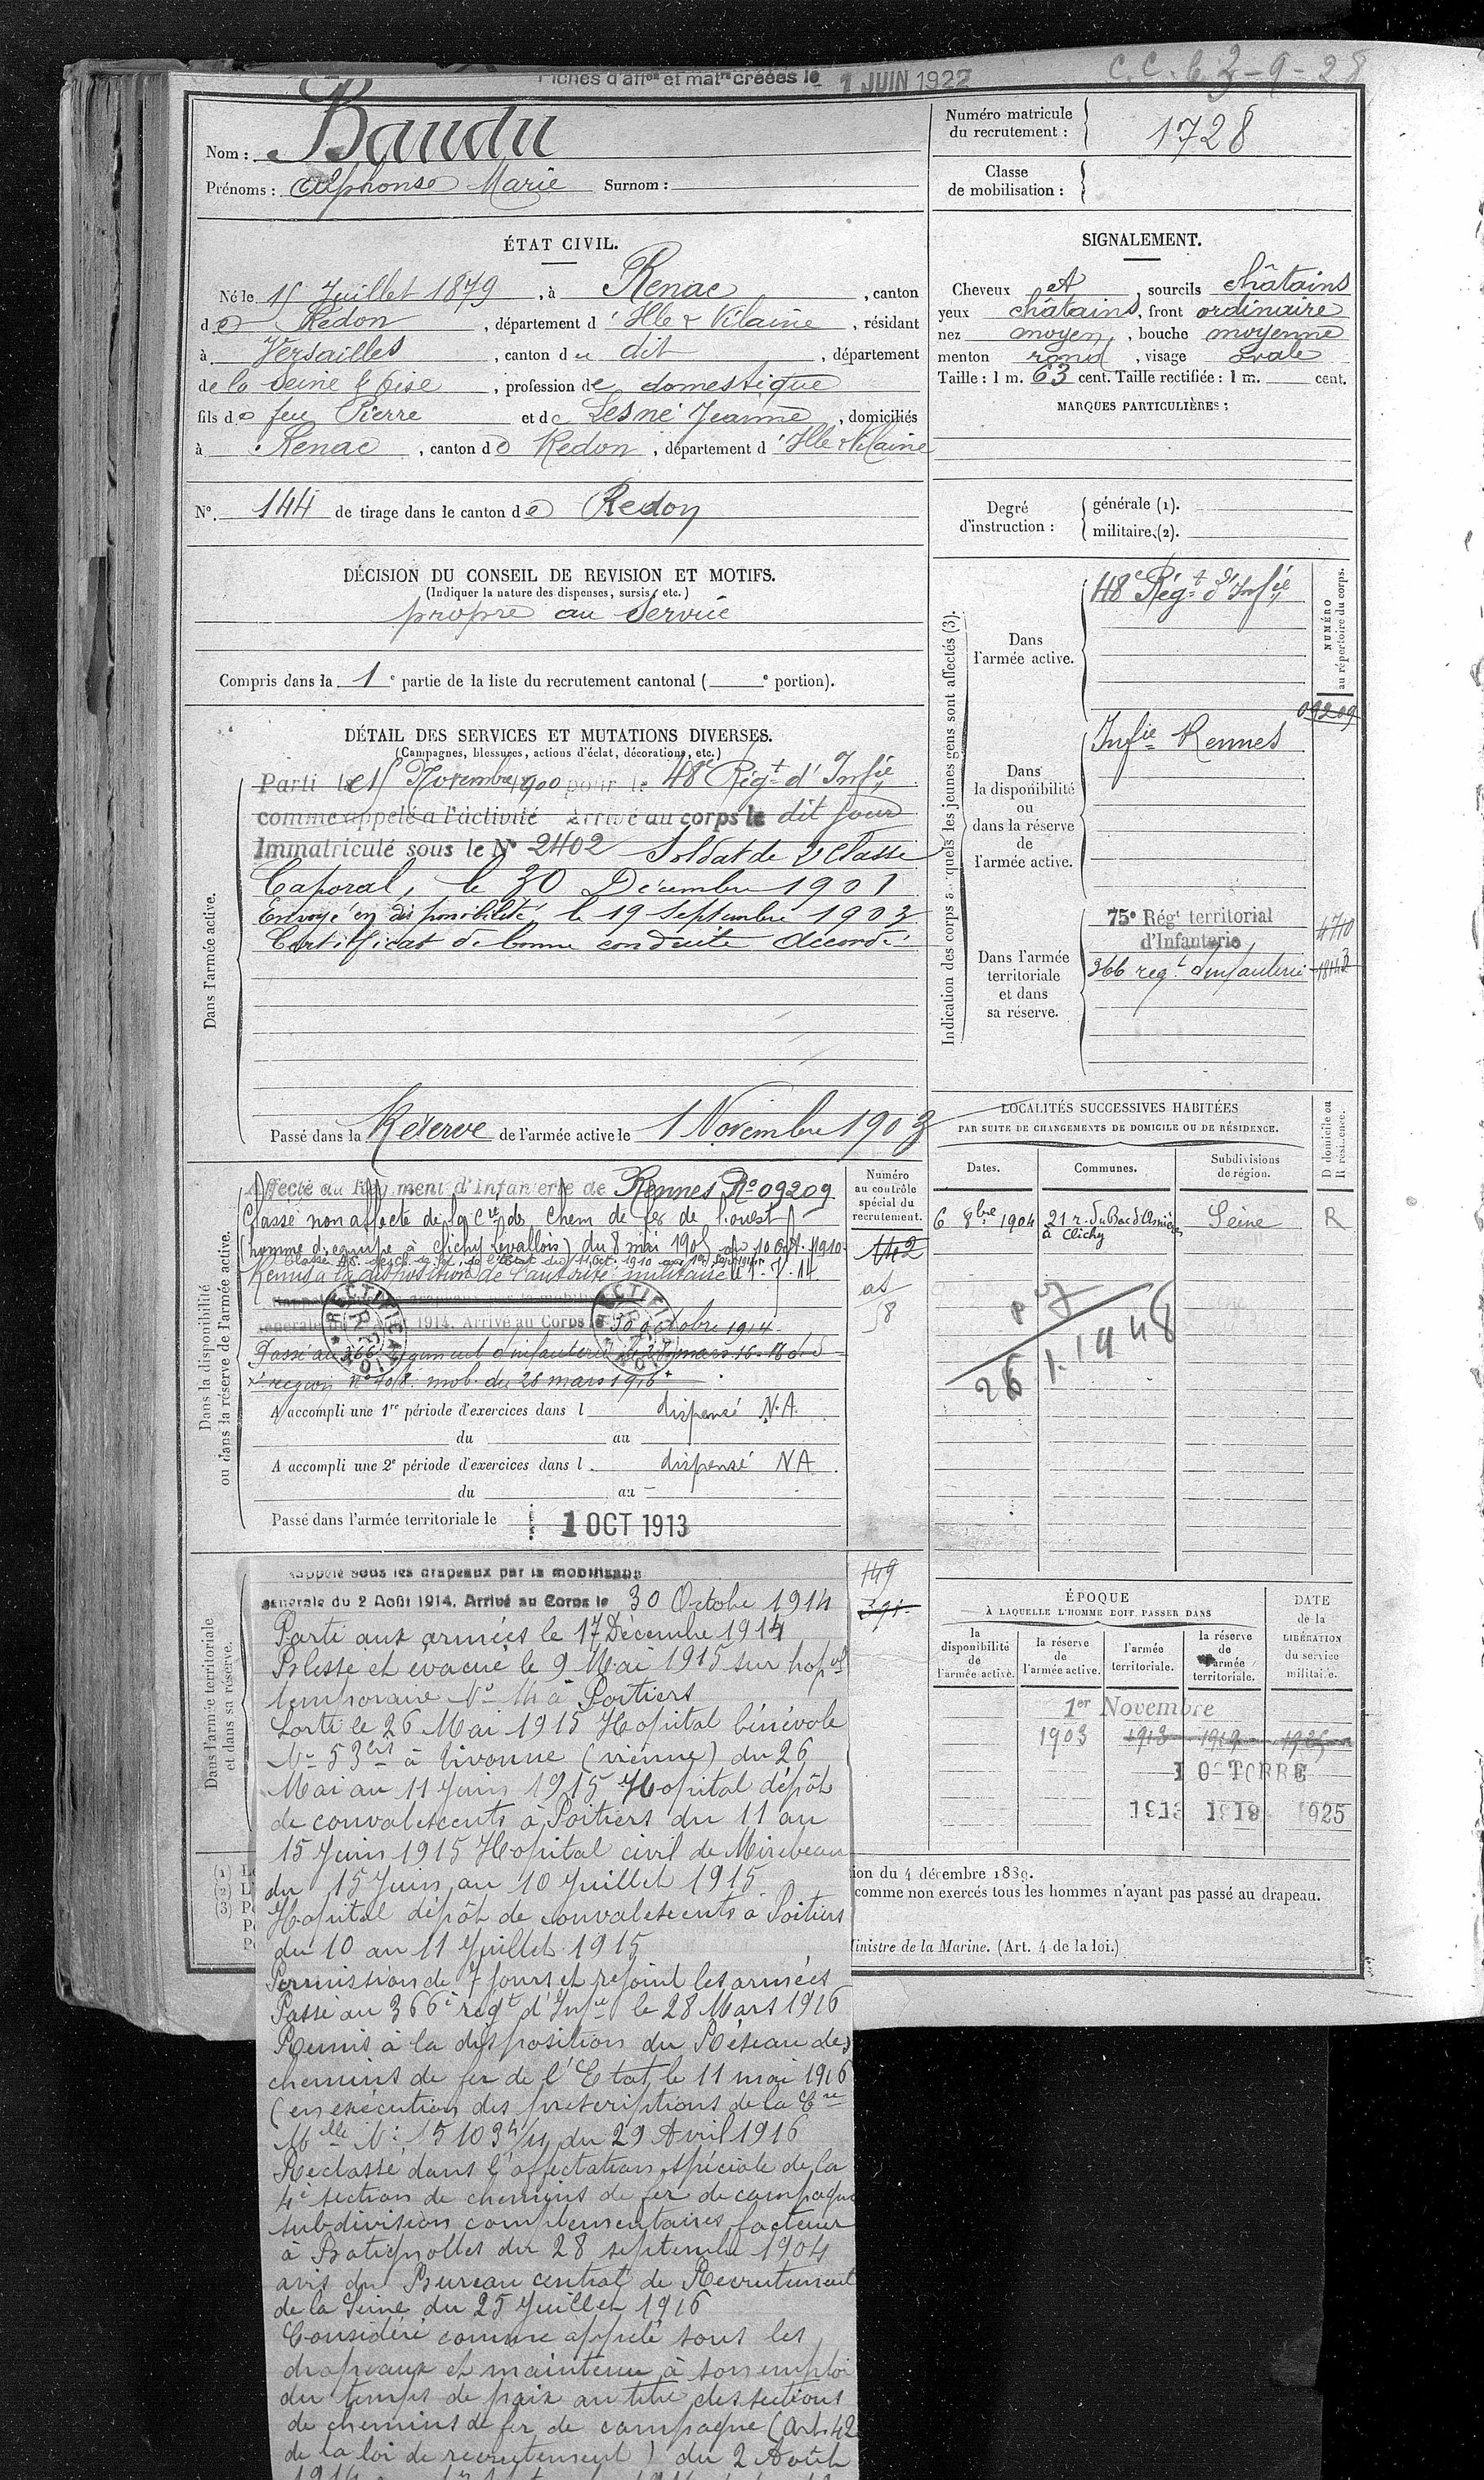 Fiches d'aff^on et mat^re créées le 1 JUIN 1922
C. C. 6. 3-9-28
Nom : Baudu
Prénoms : Alphonse Marie Surnom :
Numéro matricule
du recrutement : 1728
Classe
de mobilisation :
ÉTAT CIVIL.
Né le 15 Juillet 1879, à Renac, canton
de Redon, département d'Ille & Vilaine, résidant
à Versailles, canton du dit, département
de la Seine & Oise, profession de domestique
fils de feu Pierre et de Lesné Jeanne, domiciliés
à Renac, canton de Redon, département d'Ille & Vilaine
N°. 144 de tirage dans le canton de Redon
SIGNALEMENT.
Cheveux et, sourcils châtains
yeux châtains, front ordinaire
nez moyen, bouche moyenne
menton rond, visage ovale
Taille : 1 m. 63 cent. Taille rectifiée : 1 m. cent.
MARQUES PARTICULIÈRES :
Degré
d'instruction :
générale (1).
militaire (2).
DÉCISION DU CONSEIL DE REVISION ET MOTIFS.
(Indiquer la nature des dispenses, sursis, etc.)
propre au service
Compris dans la 1e partie de la liste du recrutement cantonal ( e portion).
DÉTAIL DES SERVICES ET MUTATIONS DIVERSES.
(Campagnes, blessures, actions d'éclat, décorations, etc.)
Dans l'armée active.
Parti le 15 Novembre 1900 pour le 48e Régt d'Infie
comme appelé à l'activité Arrivé au corps le dit jour
Immatriculé sous le N° 2402 Soldat de 2e classe
Caporal, le 30 Décembre 1901
Envoyé en disponibilité le 19 Septembre 1903
Certificat de bonne conduite accordé
Passé dans la Réserve de l'armée active le 1 Novembre 1903
Indication des corps auxquels les jeunes gens sont affectés (3).
NUMÉRO
au répertoire du corps.
Dans
l'armée active.
48e Régt d'Infie
Dans
la disponibilité
ou
dans la réserve
de
l'armée active.
Infie Rennes
09209
Dans l'armée
territoriale
et dans
sa réserve.
75e Régt territorial
d'Infanterie
4710
366 regt d'infanterie
LOCALITÉS SUCCESSIVES HABITÉES
PAR SUITE DE CHANGEMENTS DE DOMICILE OU DE RÉSIDENCE.
Dates.
Communes.
Subdivisions
de région.
D domicile ou
R résidence.
6 8bre 1904 21 r. du Bac d'Asnières Seine R
à Clichy
26 1. 1948
Dans la disponibilité
ou dans la réserve de l'armée active.
Numéro
au contrôle
spécial du
recrutement.
Affecté au Régiment d'Infanterie de Rennes N° 09209
Classé non affecté de la Cie des Chem de fer de l'ouest
(homme d'équipe à Clichy Levallois) du 8 mai 1905 au 10 Oct. 1910
Remis à la disposition de l'autorité militaire
142
as
58
générale du 2 Août 1914. Arrivé au Corps le 30 octobre 1914
Passé au 366 Régiment d'infanterie le 28 mars 16
mob. du 28 mars 1916
RECTIFICATION
RECTIFICATION
A accompli une 1re période d'exercices dans l dispensé N.A.
du au
A accompli une 2e période d'exercices dans l dispensé NA
du au
Passé dans l'armée territoriale le 1 OCT 1913
Dans l'armée territoriale
et dans sa réserve.
149
Rappelé sous les drapeaux par la mobilisation
générale du 2 Août 1914. Arrivé au Corps le 30 Octobre 1914
Parti aux armées le 17 Décembre 1914
Blessé et évacué le 9 Mai 1915 sur hopal
temporaire N° 14 à Poitiers
Sorti le 26 Mai 1915 Hopital bénévole
N° 53 bis à Vivonne (vienne) du 26
Mai au 11 Juin 1915 Hopital dépôt
de convalescents à Poitiers du 11 au
15 Juin 1915 Hopital civil de Mirebeau
du 15 Juin au 10 Juillet 1915
Hopital dépôt de convalescents à Poitiers
du 10 au 11 Juillet 1915
Permission de 7 jours et rejoint les armées
Passé au 366e regt d'Infie le 28 Mars 1916
Remis à la disposition du Réseau des
chemins de fer de l'Etat le 11 mai 1916
(en exécution des prescriptions de la Cre
Mlle N° 15103 4/11 du 29 Avril 1916
Reclassé dans l'affectation spéciale de la
4e section de chemins de fer de campagne
subdivision complémentaires facteur
à Batignolles du 28 septembre 1904
avis du Bureau central de Recrutement
de la Seine du 25 Juillet 1916
Considéré comme appelé sous les
drapeaux et maintenu à son emploi
du temps de paix au titre des sections
de chemins de fer de campagne (Art. 42
de la loi de recrutement) du 2 Août
ÉPOQUE
À LAQUELLE L'HOMME DOIT PASSER DANS
la
disponibilité
de
l'armée active.
la réserve
de
l'armée active.
l'armée
territoriale.
la réserve
de
l'armée
territoriale.
DATE
de la
LIBÉRATION
du service
militaire.
1er Novembre
1903 1913 1919
1 OCTOBRE
1913 1919 1925
(1)
(2)
(3)
ion du 4 décembre 1889.
comme non exercés tous les hommes n'ayant pas passé au drapeau.
Ministre de la Marine. (Art. 4 de la loi.)